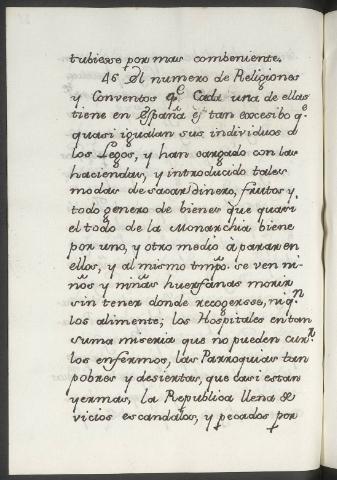 tubiesse por mas combeniente.
46 El numero de Religiones
y Conventos qe. Cada una de ellas
tiene en España es tan excesibo qe
quasi igualan sus individuos a
los Legos, y han cargado con las
haciendas, y introducido tales
modas de sacar dinero, frutos y
todo genero de bienes que quasi
el todo de la Monarchia biene
por uno, y otro medio à parar en
ellos, y al mismo tmpo. se ven ni-
ños y niñas huerfanas morir
sin tener donde recogersse, ni qn
los alimente; los Hospitales en tan
suma miseria que no pueden curr.
los enfermos, las Parroquias tan
pobres y desiertas, que casi estan
yermas, la Republica llena de
vicios escandalos, y pecados por